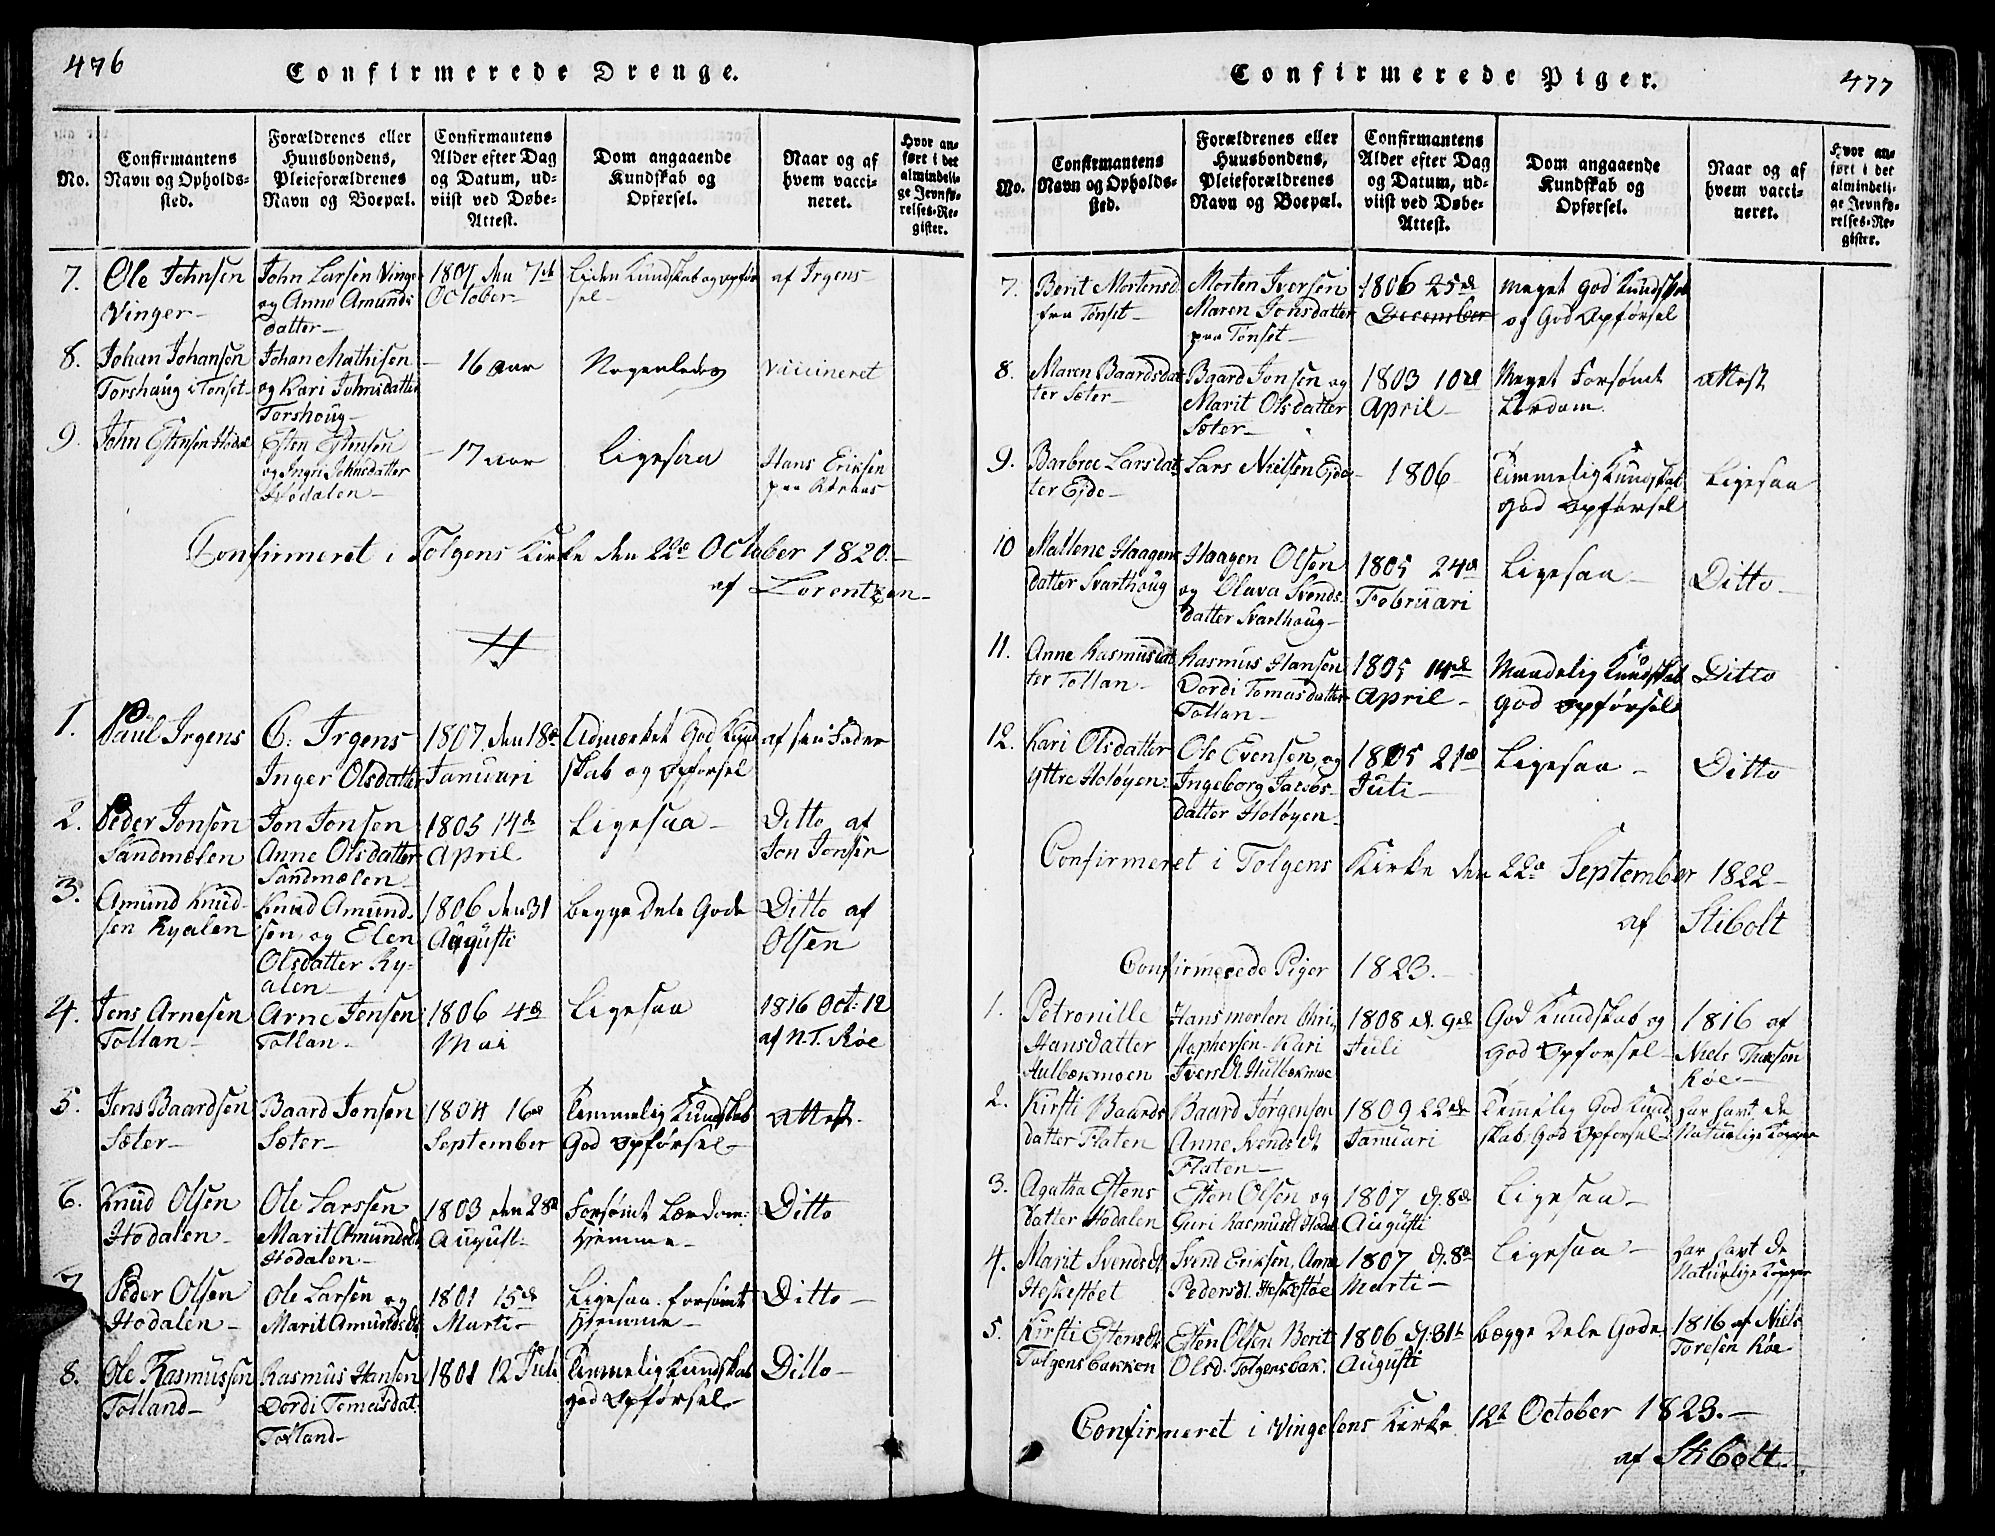 476
Confirmerede Drenge.
No.
Confirmantens
Navn og Opholds-
sted.
Forældrenes eller
Huusbondens,
Pleieforældrenes
Navn og Boepæl.
Confirmantens
Alder efter Dag
og Datum, ud-
viist ved Døbe-
Attest.
Dom angaaende
Kundskab og
Opførsel.
Naar og af
hvem vacci-
neret.
Hvor an-
ført i det
almindeli-
ge Jevnfø-
relses-Re-
gister.
7.
Ole Johnsen
Vinger-
John Larsen Vinge
og Anne Amunds
datter-
den 7de
October-
Liden Kundskab og opfør
sel-
af Irgens-
8.
Johan Johansen
Torshaug i Tønset-
Johan Mathisen
og Kari Johnsdatter
Torshoug-
16 aar
Nogenledes
vaccineret
9.
John Estensen Hodal
Esten Estensen
og Ingri Johnsdatter
Hodalen-
17 aar
Ligesaa
Hans Eriksen
paa
Confirmeret i Tolgens Kirke den 22de October 1820.-
af Lorentzen-
1.
Paul Irgens
C: Irgens
Inger Olsdatter
1807. den 18de
Januari
Udmærket God Kund
skab og opførsel
af sin Fader
2.
Peder Jonsen
Sandmælen
Jon Jonsen
Anne Olsdatter
Sandmælen-
1805 14de
April
Ligesaa-
Ditto af
Jon Jonsen
3.
Amund Knud-
sen Ryalen
Knud Amund-
sen og Elen
Olsdatter Ry-
alen-
1806 den 31
Augusti
begge Dele Gode
Ditto af
Olsen
4.
Jens Arnesen
Tollan-
Arne Jensen
Tollan-
1806 4de
Mai
Ligesaa
1816 Oct: 12
af N.T. Røe
5.
Jens Baardsen
Sæter-
Baard Jonsen
Sæter-
1804 16de
September
Temmelig Kundskab
God opførsel-
attest.
6.
Knud Olsen
Hodalen-
Ole Larssen
Marit Amundsdt
Hodalen-
1803 den 28de
August-
Forsømt Lærdom
Hjemme-
Ditto
7
Peder Olsen
Hodalen-
Ole Larsen og
Marit Amundsdt
1801 15de
Marti-
Ligesaa forsømt
Hjemme-
Ditto-
8.
Ole Rasmussen
Tolland-
Rasmus Hansen
Dordi Tomasdat
Tolland-
1801 12 Juli
Temmelig Kundskab
god opførsel-
Ditto-
Confirmerede Piger.
477
No.
Confirmantens
Navn og Opholds-
sted.
Forældrenes eller
Huusbondens,
Pleieforældrenes
Navn og Boepæl.
Confirmantens
Alder efter Dag
og Datum, ud-
viist ved Døbe-
Attest.
Dom angaaende
Kundskab og
Opførsel.
Naar og af
hvem vacci-
neret.
Hvor an-
ført i det
almindeli-
ge Jevnfø-
relses-Re-
gister.
7.
Berit Mortensd
fra Tønset-
Morten Iversen
Maren Jonsdatter
paa Tønset-
1806 25de
December
Meget God Kundskab
og God Opførsel
8.
Maren Baardsdat
ter Sæter-
Baard Jonsen og
Marit Olsdatter
Sæter-
1803 10de
April-
Meget Forsømt
Lærdom.
attest
9.
Barbroe Larsdat
ter Ejde-
Lars Nielsen Ejde-
1806
Temmelig Kundskab
god opførsel
Ligesaa
10
Mallene Haagens
datter Svarthoug
Haagen Olsen
og Olava Svends-
datter Svarthoug-
1805 24de
Februari
Ligesaa-
Ditto-
11.
Anne Rasmusdat
ter Tollan-
Rasmus Hansen
Dordi Tomasdatter
Tollan-
1805 14de
April-
Maadelig Kundskab
god opførsel
Ditto
12.
Kari Olsdatter
yttre Holøyen-
Ole Evensen, og
Ingeborg Jacobs-
datter Holøyen-
1805 21de
Juli-
Ligesaa-
Ditto
Confirmeret i Tolgens Kirke den 22de September 1822-
af Stibolt
Confirmerede Piger 1823.-
1.
Petronille
Hansdatter
Hulbækmoen
Hans morten Chri
stophersen. Kari
Iversdt Hulbekmoe
1808 d. 9de
Juli
God Kundskab og
god opførsel-
1816 af
Niels
Røe-
2.
Kirsti Baards
datter Flaten
Baard Jørgensen
Anne Svendsdt
Flaten-
1809 22de
Januari
Temelig God Kund
skab. God Opførsel-
har havt de
Naturlige Kopper
3.
Agatha Estens
datter Hodalen
Esten Olsen og
Guri Rasmusdt Hodal
1807 d. 8de
Augusti
Ligesaa-
4.
Marit Svendsdt
Heskestøet
Svend Eriksen, Anne
Pedersdt. Heskestøe
1807 d. 8de
Marti-
Ligesaa-
har havt de
Naturlige Kopper
5.
Kirsti Estensdt
Tolgensbakken
Esten Olsen Berit
Olsd. Tolgensbak.
1806 d. 31te
Augusti
bægge Dele Gode
1816 af Niels
Toresen Røe
Confirmeret i Vingelens Kirke 12te October 1823.-
af Stibolt-